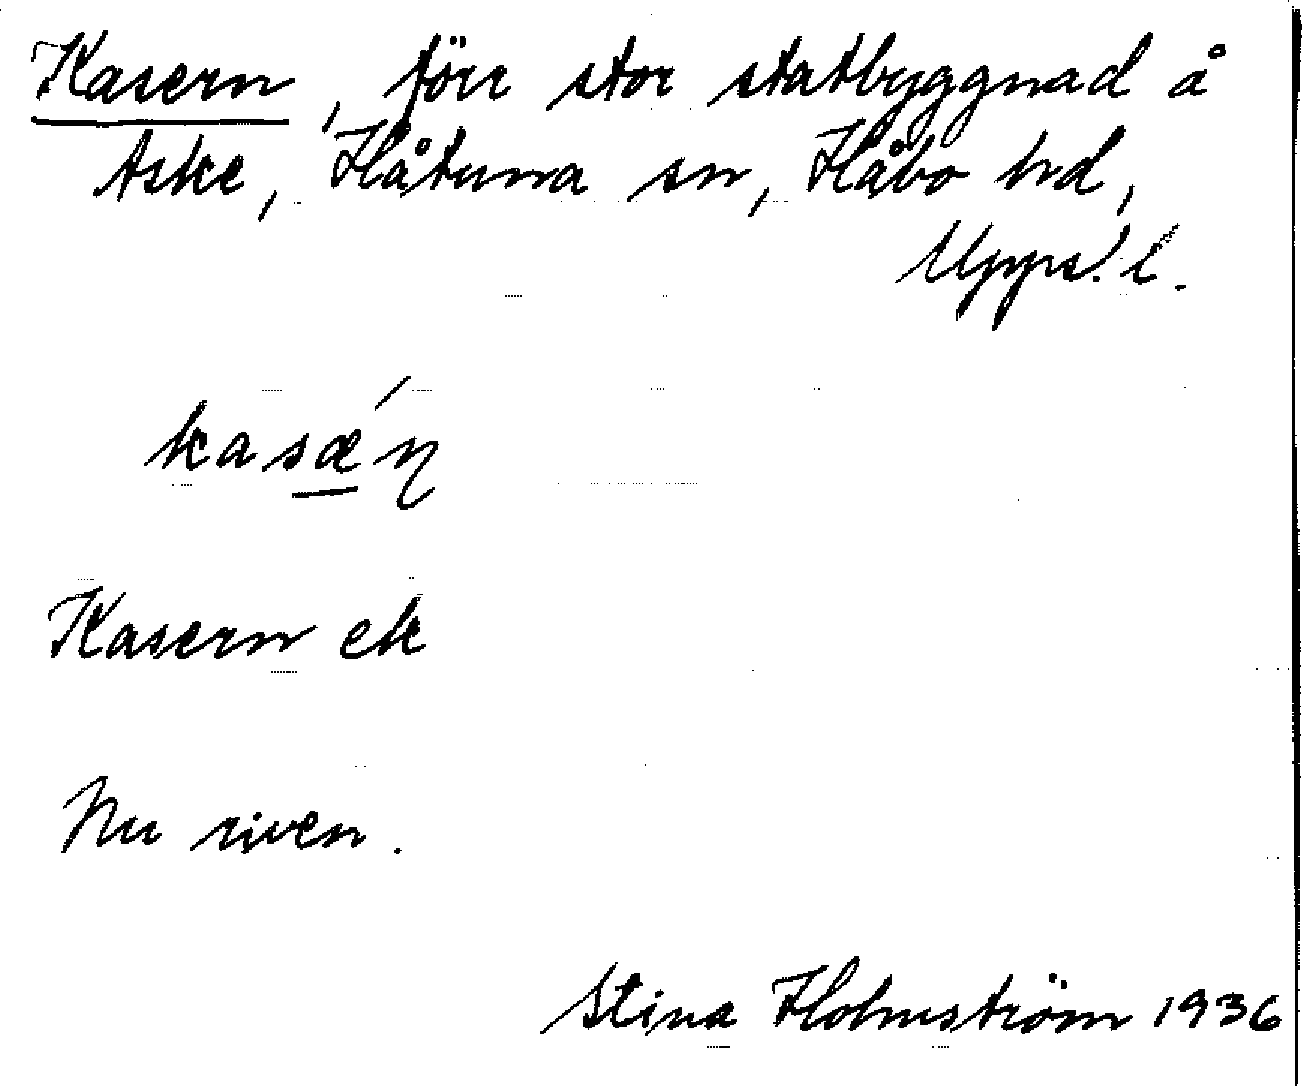 Kasern, förr stor statbyggnad å
Aske, Håtuna sn, Håbo hd,
Upps. l.
kasǽɳ
Kasern ek
Nu riven.
Stina Holmström 1936